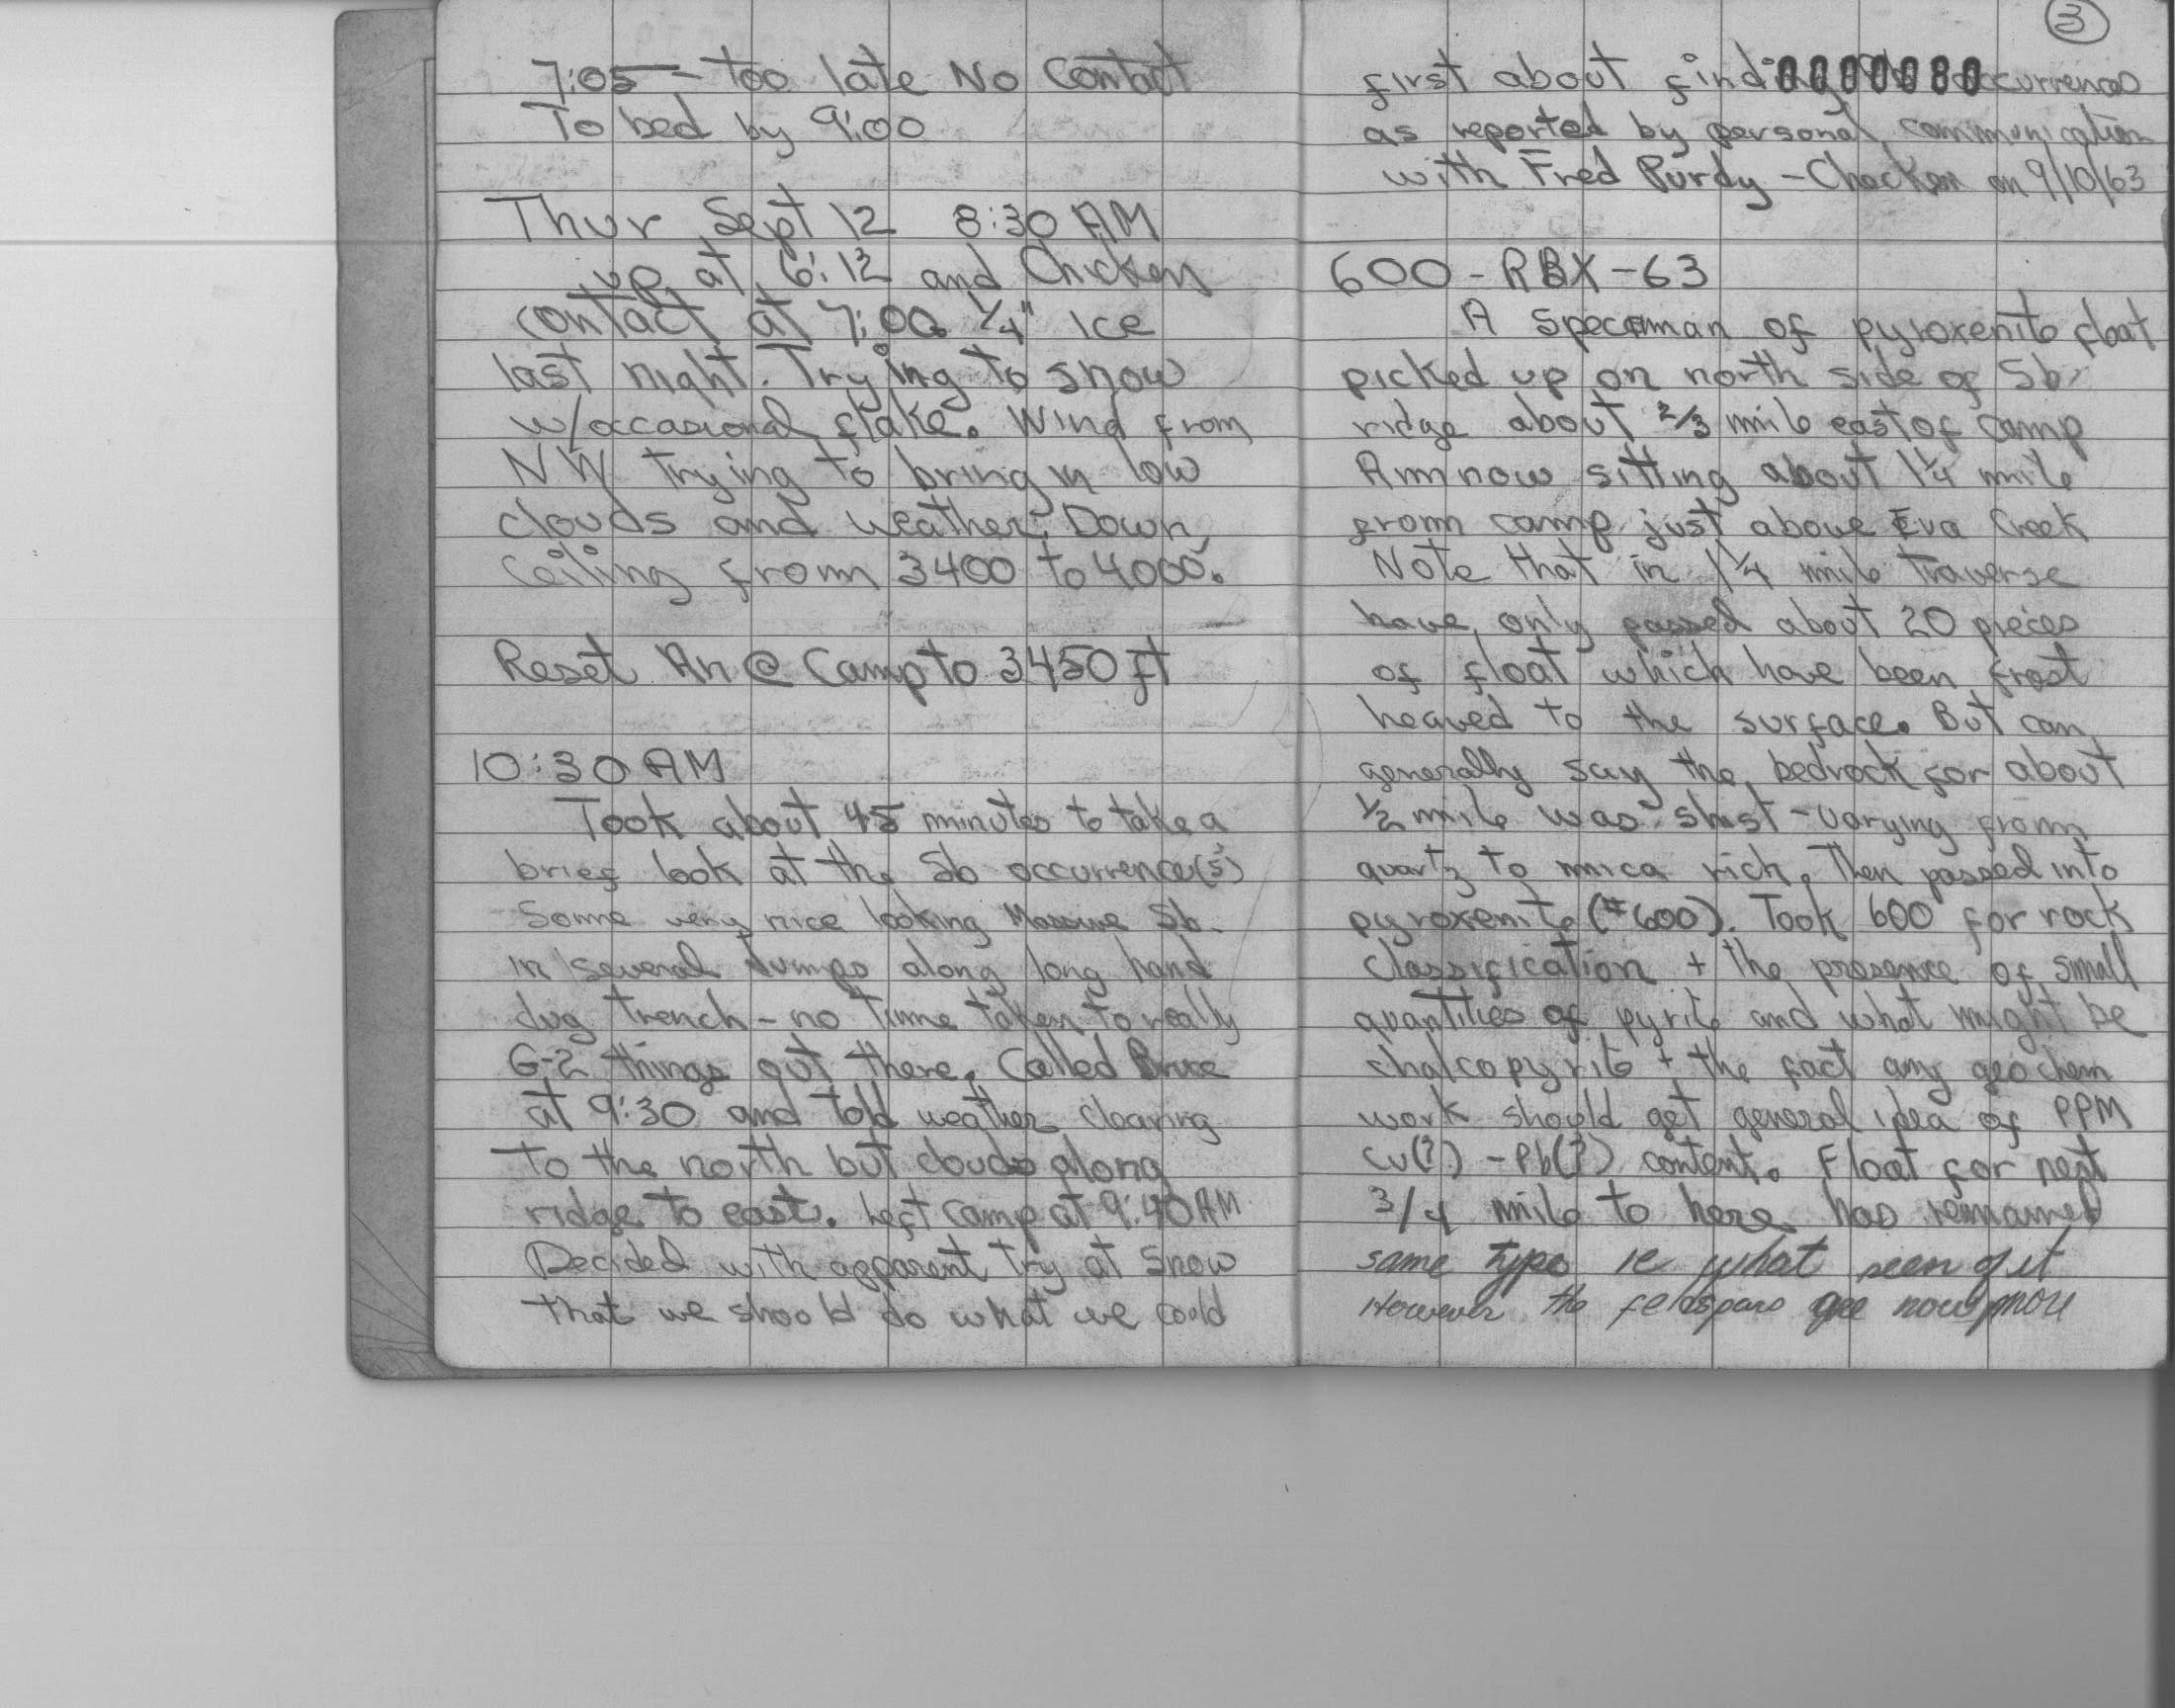 7:05 – too late No Contact
To bed by 9:00
Thur Sept 12 8:30 AM
up at 6:12 and Chicken
contact at 7:00. 1/4" Ice
last night. Trying to snow
w/occasional flake. Wind from
NW trying to bring in low
clouds and weather. Down
ceiling from 3400 to 4000'.
Reset An @ Camp to 3450 ft
10:30 AM
Took about 45 minutes to take a
brief look at the Sb occurrence(s)
Some very nice looking Massive Sb.
in several dumps along long hand
dug trench – no time taken to really
G-2 things out there. Called Bruce
at 9:30 and told weather clearing
to the north but clouds along
ridge to east. Left camp at 9:40 AM
Decided with apparent try at snow
that we should do what we could
3
first about finding occurrence
0000080
as reported by personal communication
with Fred Purdy – Chicken on 9/10/63
600 - RBX - 63
A speceman of pyroxenite float
picked up on north side of Sb
ridge about 2/3 mile east of camp
Am now sitting about 1 1/4 mile
from camp just above Eva Creek
Note that in 1 1/4 mile traverse
have only passed about 20 pieces
of float which have been frost
heaved to the surface. But can
generally say the bedrock for about
1/2 mile was shist – varying from
quartz to mica rich. Then passed into
pyroxenite (#600). Took 600 for rock
classification + the presence of small
quantities of pyrite and what might be
chalcopyrite + the fact any geochem
work should get general idea of PPM
Cu(?) – Pb(?) content. Float for next
3/4 mile to here has remained
same type ie what seen of it
However the feldspars are now more